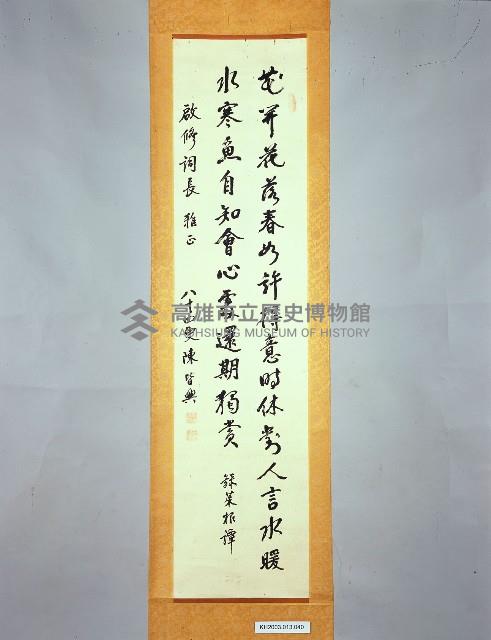 花開花落春如許得意時休對人言水暖
水寒魚自知會心處還期獨賞
錄菜根譚
啟修詞長 雅正
八十四叟陳皆興
高雄市立歷史博物館
KAOHSIUNG MUSEUM OF HISTORY
KH2003.013.040